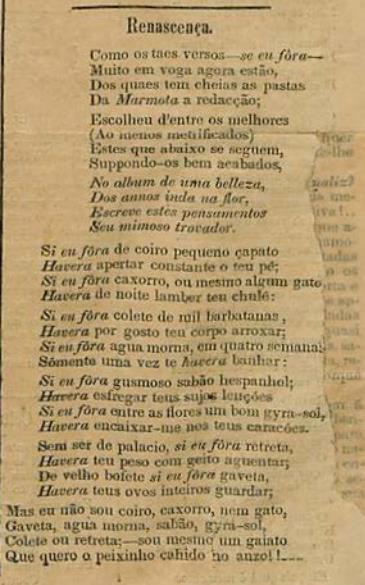 Renascença.
Como os taes versos—se eu fôra—
Muito em voga agora estão,
Dos quaes tem cheias as pastas
Da Marmota a redacção;
Escolheu d'entre os melhores
(Ao menos metrificados)
Estes que abaixo se seguem,
Suppondo-os bem acabados,
No album de uma belleza,
Dos annos inda na flor,
Escreve estes pensamentos
Seu mimoso trovador.
Si eu fôra de coiro pequeno çapato
Havera apertar constante o teu pé;
Si eu fôra caxorro, ou mesmo algum gato
Havera de noite lamber teu chulé:
Si eu fôra colete de mil barbatanas,
Havera por gosto teu corpo arroxar;
Si eu fôra agua morna, em quatro semanas
Sómente uma vez te havera banhar:
Si eu fôra gusmoso sabão hespanhol;
Havera esfregar teus sujos lenções
Si eu fôra entre as flores um bom gyra-sol,
Havera encaixar-me nos teus caracóes.
Sem ser de palacio, si eu fôra retreta,
Havera teu peso com geito aguentar;
De velho bofete si eu fôra gaveta,
Havera teus ovos inteiros guardar;
Mas eu não sou coiro, caxorro, nem gato,
Gaveta, agua morna, sabão, gyra-sol,
Colete ou retreta;—sou mesmo um gaiato
Que quero o peixinho cahido no anzol!....